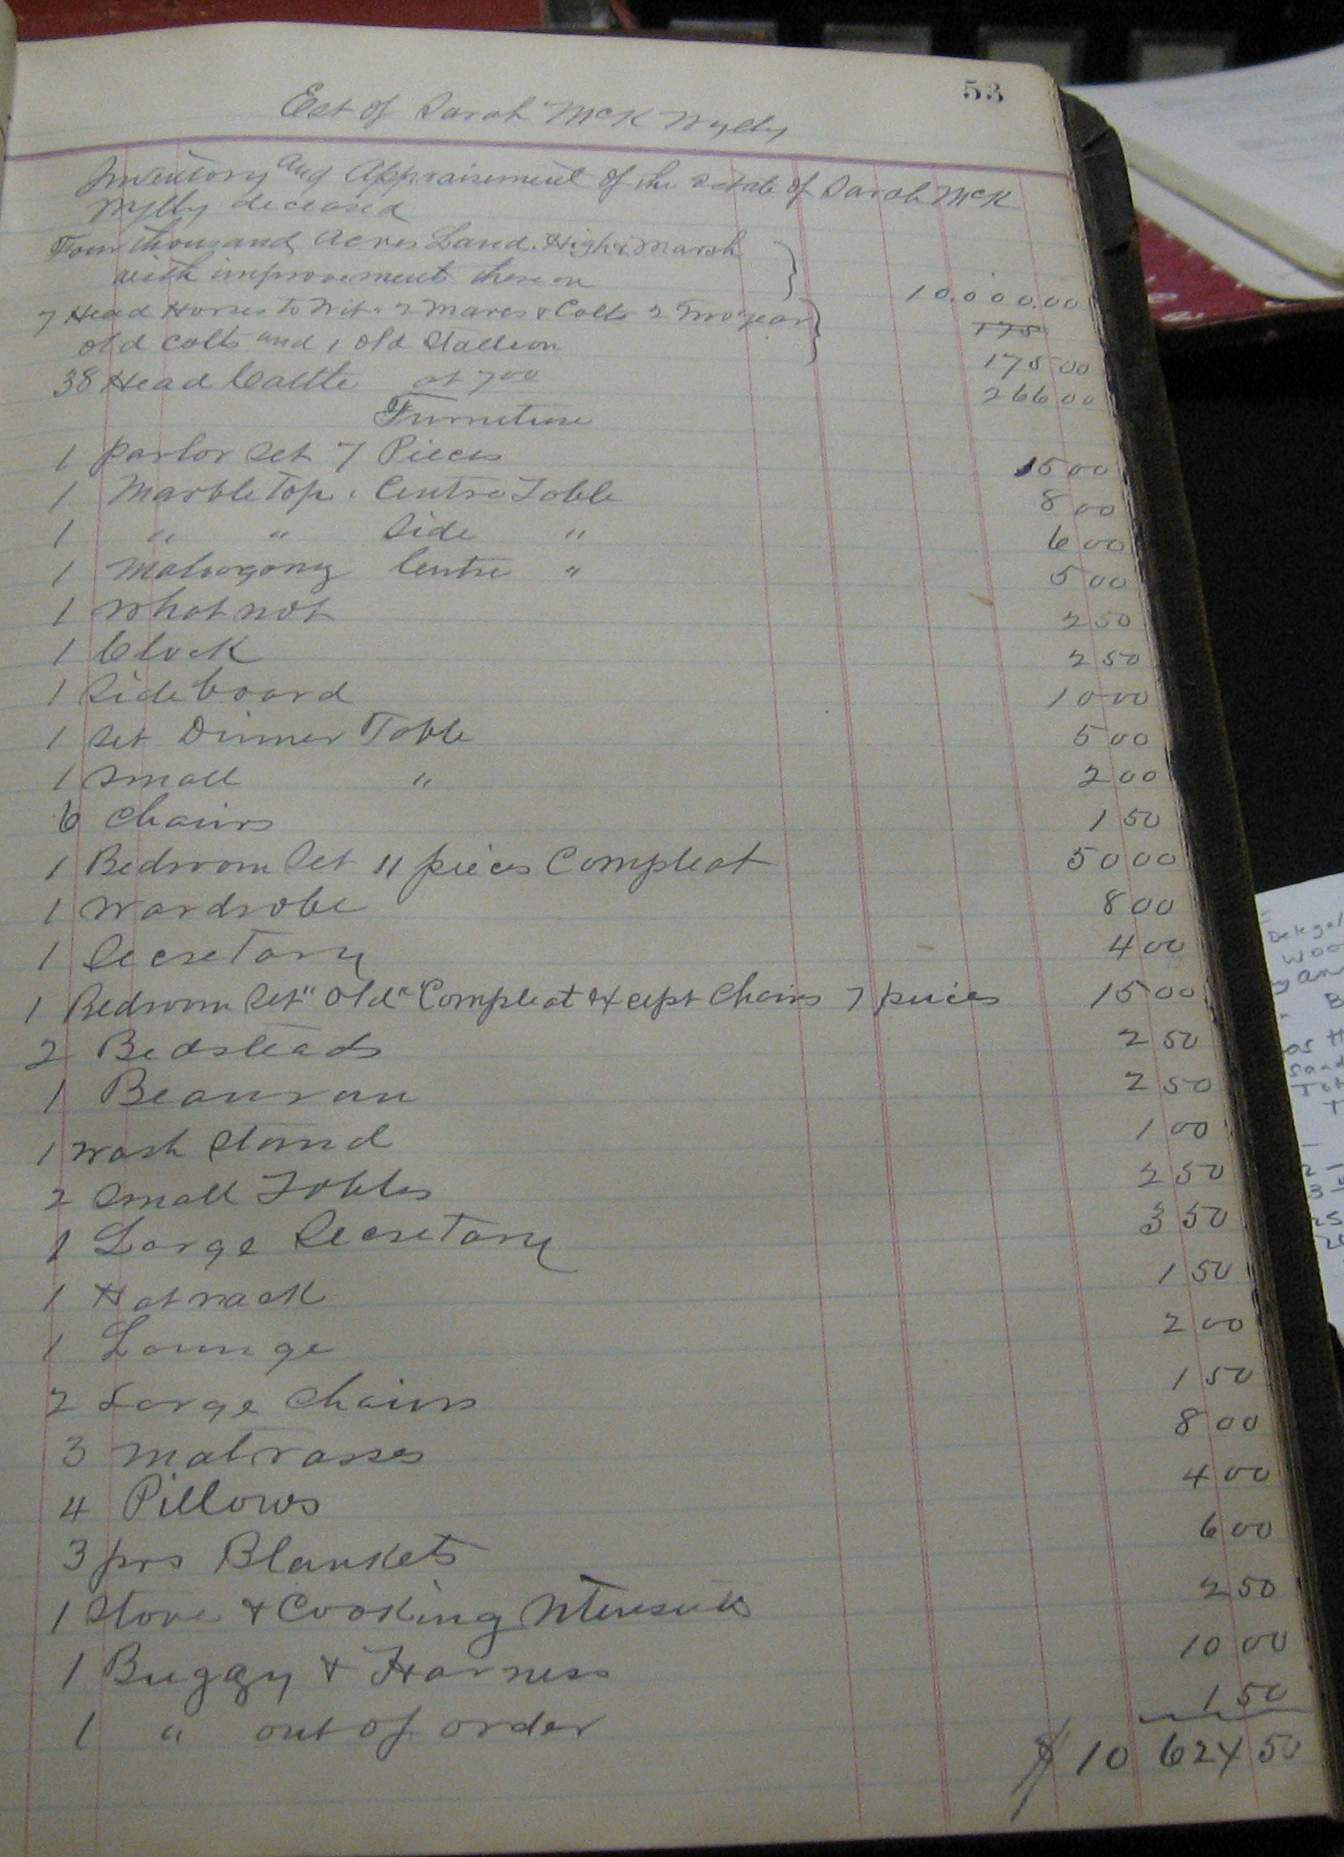 53
Est of Sarah McK Wylly
Inventory and Appraisement of the Estate of Sarah McK
Wylly deceased
Four thousand Acres Land. High & Marsh
with improvements thereon 10.000.00
175
7 Head Horses to Wit. 2 Mares & Colts 2 Two year
old colts and 1 Old Stallion 175 00
38 Head Cattle at 7 00 266 00
Furniture
1 Parlor Set 7 Pieces 15 00
1 Marble Top. Centre Table 8 00
1 " " Side " 6 00
1 Mahogony Centre " 5 00
1 What not 2 50
1 Clock 2 50
1 Sideboard 10 00
1 Set Dinner Table 5 00
1 Small " 2 00
6 Chairs 1 50
1 Bedroom Set 11 pieces Compleat 50 00
1 Wardrobe 8 00
1 Secretary 4 00
1 Bedroom Set "Old" Compleat Except Chairs 7 pieces 15 00
2 Bedsteads 2 50
1 Beaurau 2 50
1 Wash Stand 1 00
2 Small Tables 2 50
1 Large Secretary 3 50
1 Hat rack 1 50
1 Lounge 2 00
2 Large Chairs 1 50
3 Matrasses 8 00
4 Pillows 4 00
3 prs Blankets 6 00
1 Stove & Cooking Utensils 2 50
1 Buggy & Harness 10 00
1 " out of order 1 50
$ 10 624 50